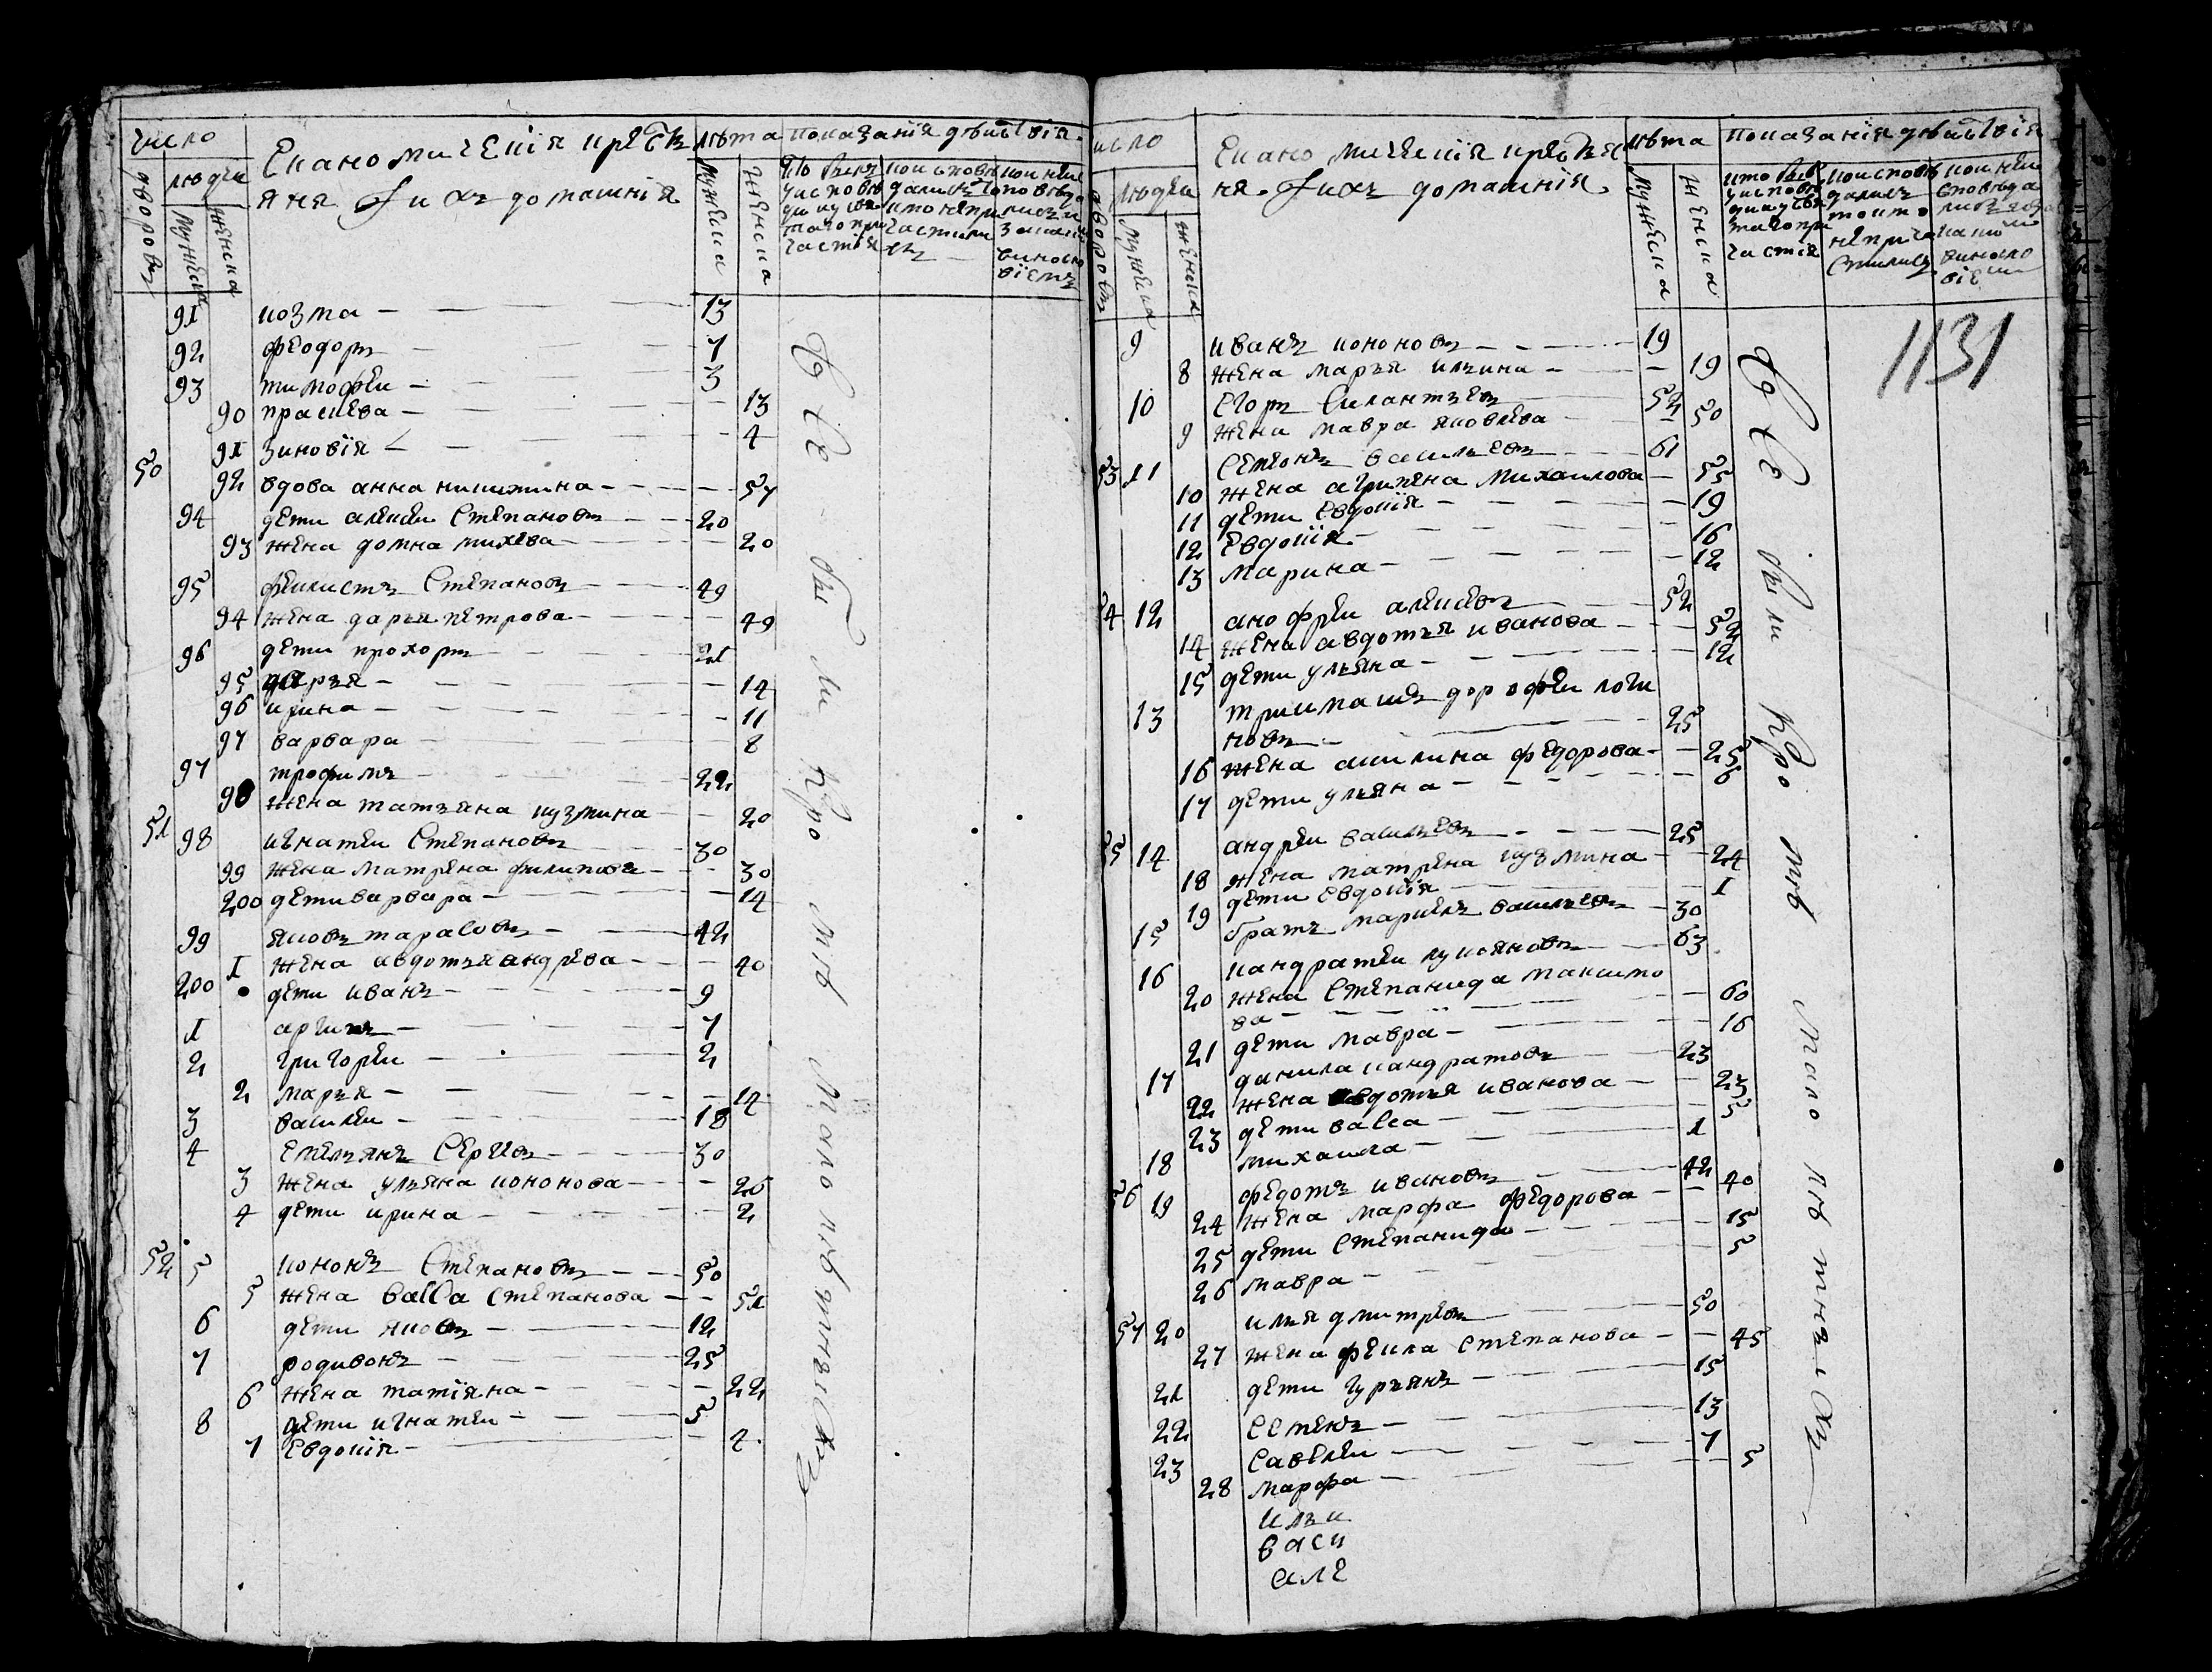 число
Екано мическїя крестя
лѣта
показанїя дѣйствїя
яня и ихъ домашнїя
дворовъ
людей
мужеска
женска
мужеска
женска
91 козма — 13
92 феодоръ — 7
93 тимофеи — 3
90 прасковя — 13
91 зиновїя — 4
50 92 вдова анна никитина — 57
94 дети алексеи Степановъ — 20
93 жена домна михева — 20
95 феклистъ Степановъ — 49
94 жена дарья петрова — 49
96 дети прохоръ — 21
95 дарья — 14
96 ирина — 11
97 варвара — 8
97 трофимъ — 22
98 жена татьяна кузмина — 20
51 98 игнатеи Степановъ — 30
99 жена матрена филипова — 30
200 дети варвара — 14
99 яковъ тарасовъ — 42
1 жена авдотья андрева — 40
200 дети иванъ — 9
1 архипъ — 7
2 григореи — 2
2 марья — 14
3 василеи — 18
4 емельянъ Сергевъ — 30
3 жена ульяна кононова — 26
4 дети ирина — 2
52 5 кононъ Степановъ — 50
5 жена васса степанова — 51
6 дети яковъ — 12
7 родивонъ — 25
6 жена татїяна — 22
8 дети игнатеи — 5
7 Евдокїя — 2
Все были
число
Екано мическїя крестья
лѣта
показанїя дѣйствїя
ня и ихъ домашнїя
дворовъ
людей
мужеска
женска
мужеска
женска
1131
9 иванъ кононовъ — 19
8 жена марья ильина — 19
10 Егоръ Силантьевъ — 52
9 жена мавра яковлева — 50
53 11 Семионъ васильевъ — 61
10 жена агрипена михаилова — 55
11 дети Евдокїя — 19
12 Евдокїя — 16
13 марина — 12
54 12 анофреи алексевъ — 52
14 жена авдотья иванова — 52
15 дети ульяна — 12
13 приимашъ дорофеи логи
новъ — 25
16 жена акилина федорова — 25
17 дети ульяна — 6
55 14 андреи васильевъ — 25
18 жена матрена кузмина — 24
19 дети Евдокїя — 1
15 братъ маркелъ васильевъ — 30
16 кандратеи лукояновъ — 63
20 жена Степанида максимо
ва — 60
21 дети мавра — 16
17 данила кандратовъ — 23
22 жена авдотья иванова — 23
23 дети васса — 5
18 михаила — 1
56 19 федотъ ивановъ — 42
24 жена марфа федорова — 40
25 дети Степанида — 15
26 мавра — 5
57 20 илья дмитревъ — 50
27 жена фекла степанова — 45
21 дети гурьянъ — 15
22 Семенъ — 13
23 Савелеи — 7
28 марфа — 5
ильи
васи
але
Все были кромѣ малолѣтныхъ